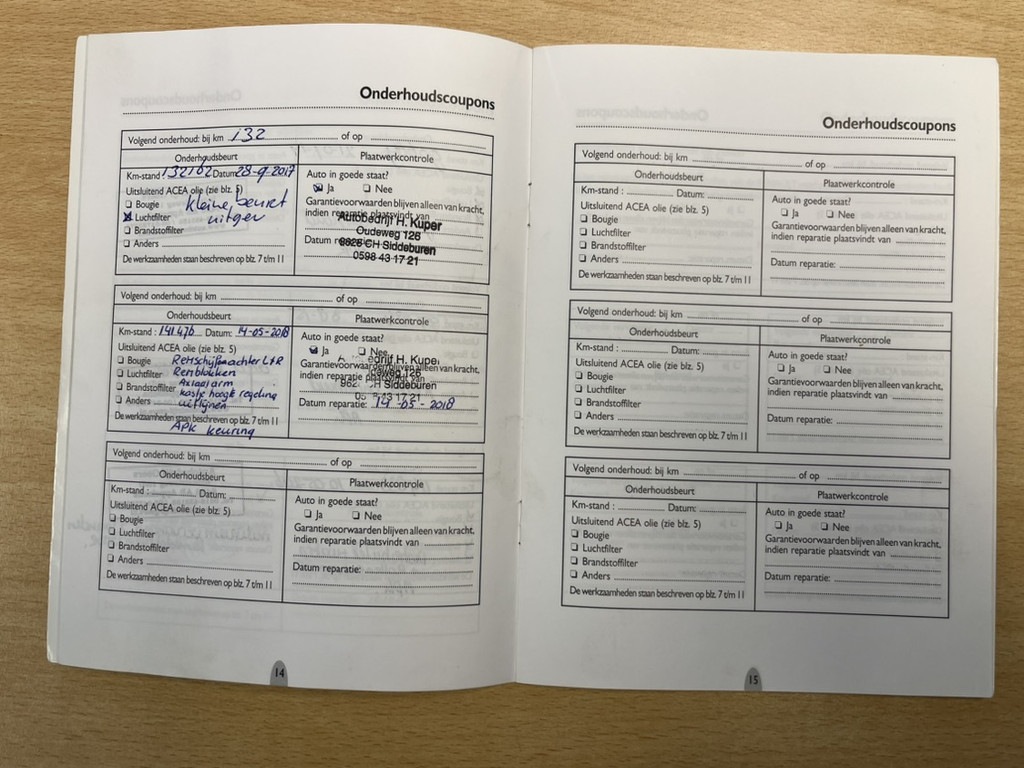 Onderhoudscoupons
Volgend onderhoud: bij km 132 of op
Onderhoudsbeurt Plaatwerkcontrole
Km-stand 132102 Datum 28-9-2017 Auto in goede staat?
Uitsluitend ACEA olie (zie blz. 5) Ja Nee
Bougie kleine beurt Garantievoorwaarden blijven alleen van kracht,
Luchtfilter indien reparatie plaatsvindt van
Autobedrijf H. Kuper
Brandstoffilter Oudeweg 126
Anders Datum
9626 CH Siddeburen
0598 43 17 21
De werkzaamheden staan beschreven op blz. 7 t/m 11
Volgend onderhoud: bij km of op
Onderhoudsbeurt Plaatwerkcontrole
Km-stand : 141476 Datum: 14-05-2018 Auto in goede staat?
Uitsluitend ACEA olie (zie blz. 5) Ja Nee
Bougie Remschijfmachter L+R Garantievoorwaarden blijven alleen van kracht,
Luchtfilter Remblokken indien reparatie plaatsvindt van
edrijf H. Kuper
deweg 126
CH Siddeburen
Brandstoffilter Axiaalarm
koplamp hoogte regeling
Anders uitlijnen Datum reparatie: 14-05-2018
De werkzaamheden staan beschreven op blz. 7 t/m 11
APK keuring
Volgend onderhoud: bij km of op
Onderhoudsbeurt Plaatwerkcontrole
Km-stand : Datum: Auto in goede staat?
Uitsluitend ACEA olie (zie blz. 5) Ja Nee
Bougie Garantievoorwaarden blijven alleen van kracht,
Luchtfilter indien reparatie plaatsvindt van
Brandstoffilter
Anders Datum reparatie:
De werkzaamheden staan beschreven op blz. 7 t/m 11
14
Onderhoudscoupons
Volgend onderhoud: bij km of op
Onderhoudsbeurt Plaatwerkcontrole
Km-stand : Datum: Auto in goede staat?
Uitsluitend ACEA olie (zie blz. 5) Ja Nee
Bougie Garantievoorwaarden blijven alleen van kracht,
Luchtfilter indien reparatie plaatsvindt van
Brandstoffilter
Anders Datum reparatie:
De werkzaamheden staan beschreven op blz. 7 t/m 11
Volgend onderhoud: bij km of op
Onderhoudsbeurt Plaatwerkcontrole
Km-stand : Datum: Auto in goede staat?
Uitsluitend ACEA olie (zie blz. 5) Ja Nee
Bougie Garantievoorwaarden blijven alleen van kracht,
Luchtfilter indien reparatie plaatsvindt van
Brandstoffilter
Anders Datum reparatie:
De werkzaamheden staan beschreven op blz. 7 t/m 11
Volgend onderhoud: bij km of op
Onderhoudsbeurt Plaatwerkcontrole
Km-stand : Datum: Auto in goede staat?
Uitsluitend ACEA olie (zie blz. 5) Ja Nee
Bougie Garantievoorwaarden blijven alleen van kracht,
Luchtfilter indien reparatie plaatsvindt van
Brandstoffilter
Anders Datum reparatie:
De werkzaamheden staan beschreven op blz. 7 t/m 11
15